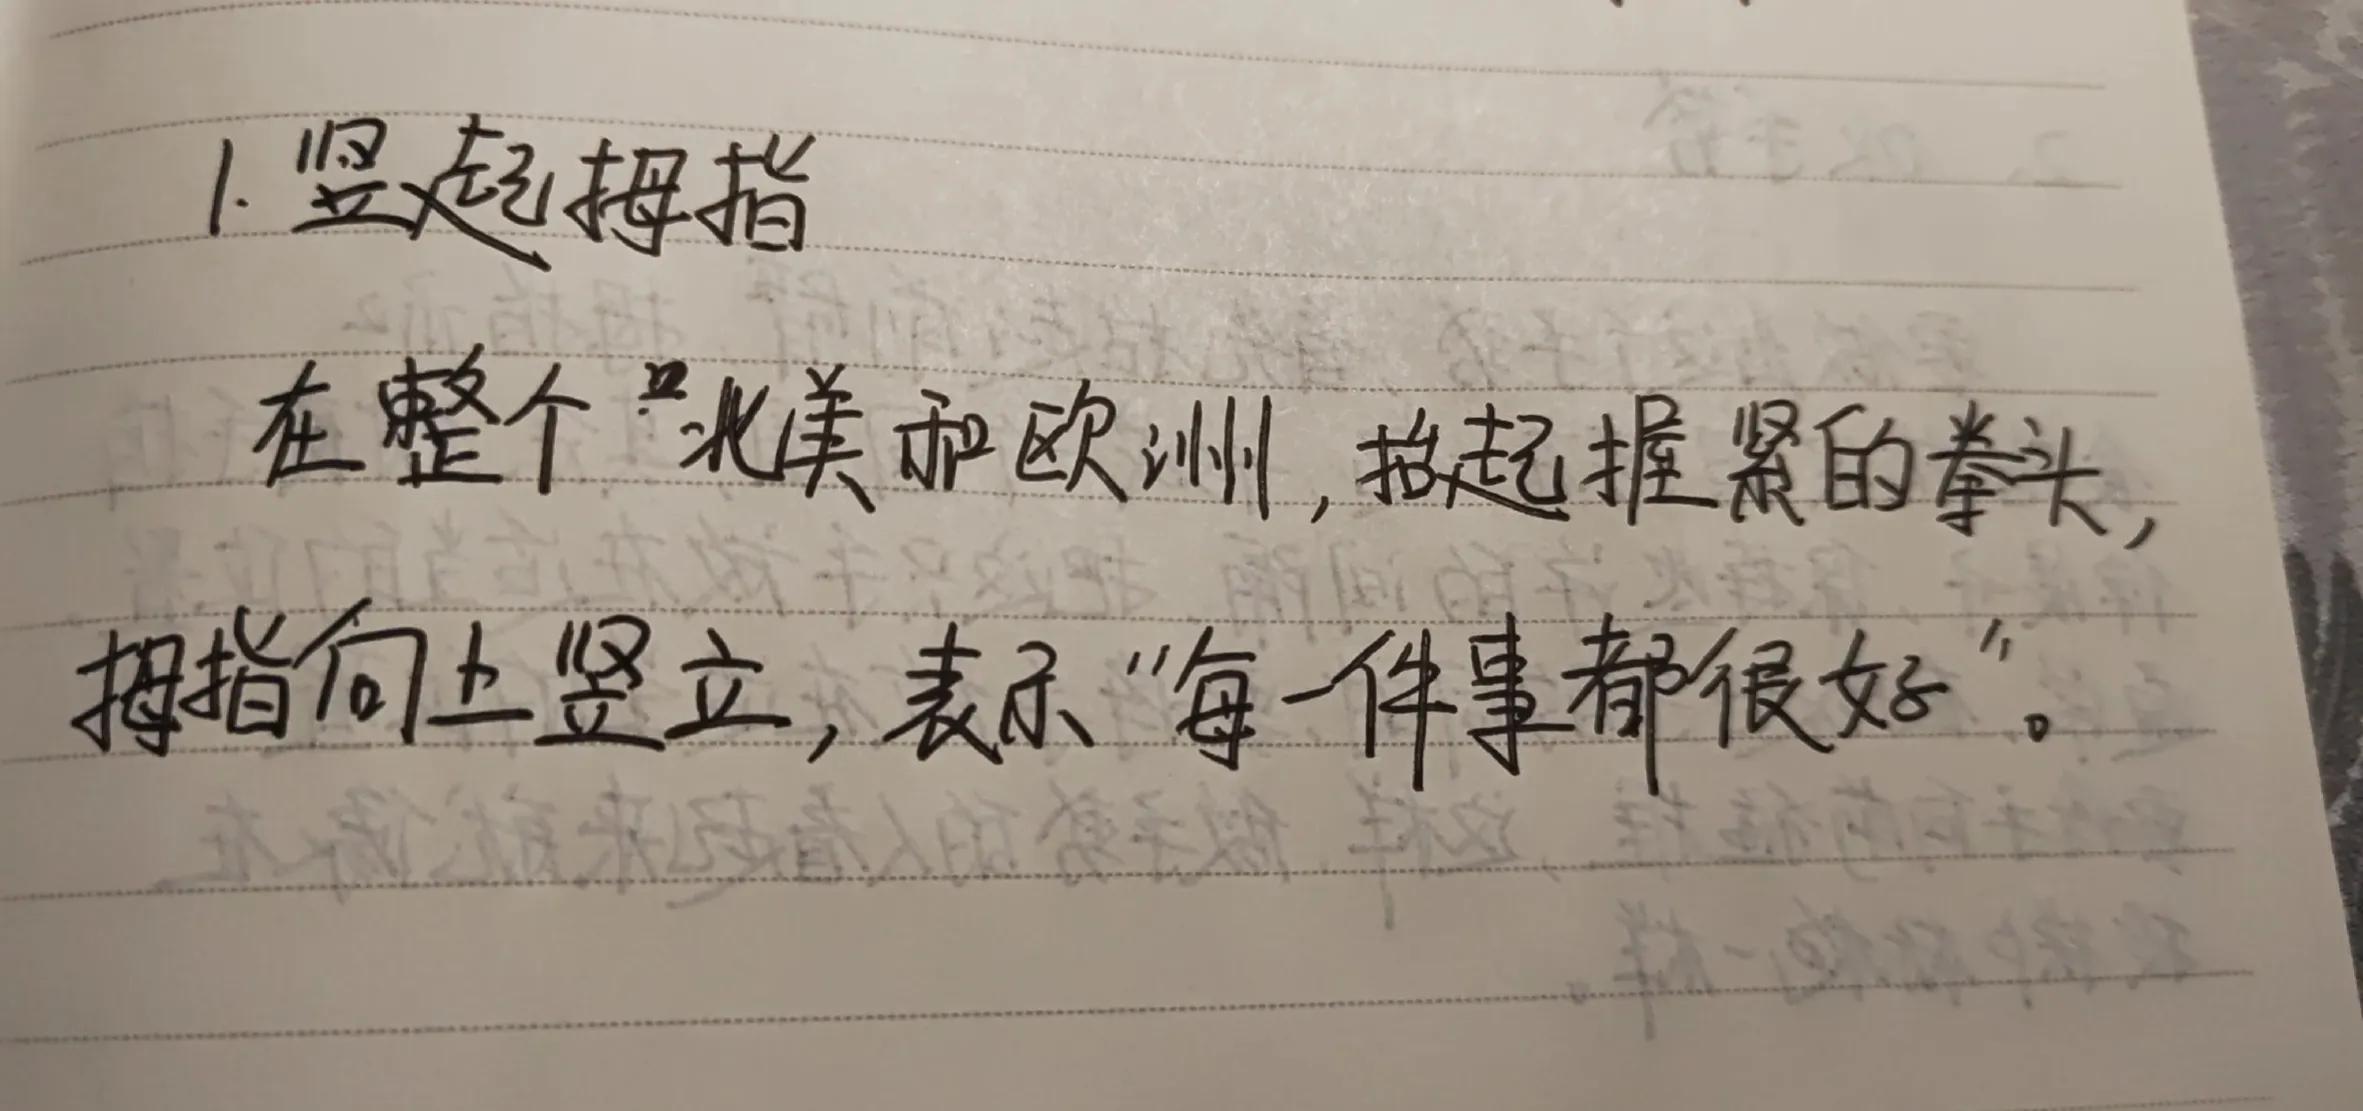 1.竖起拇指
在整个北美和欧洲,抬起握紧的拳头,
拇指向上竖立,表示“每一件事都很好”。